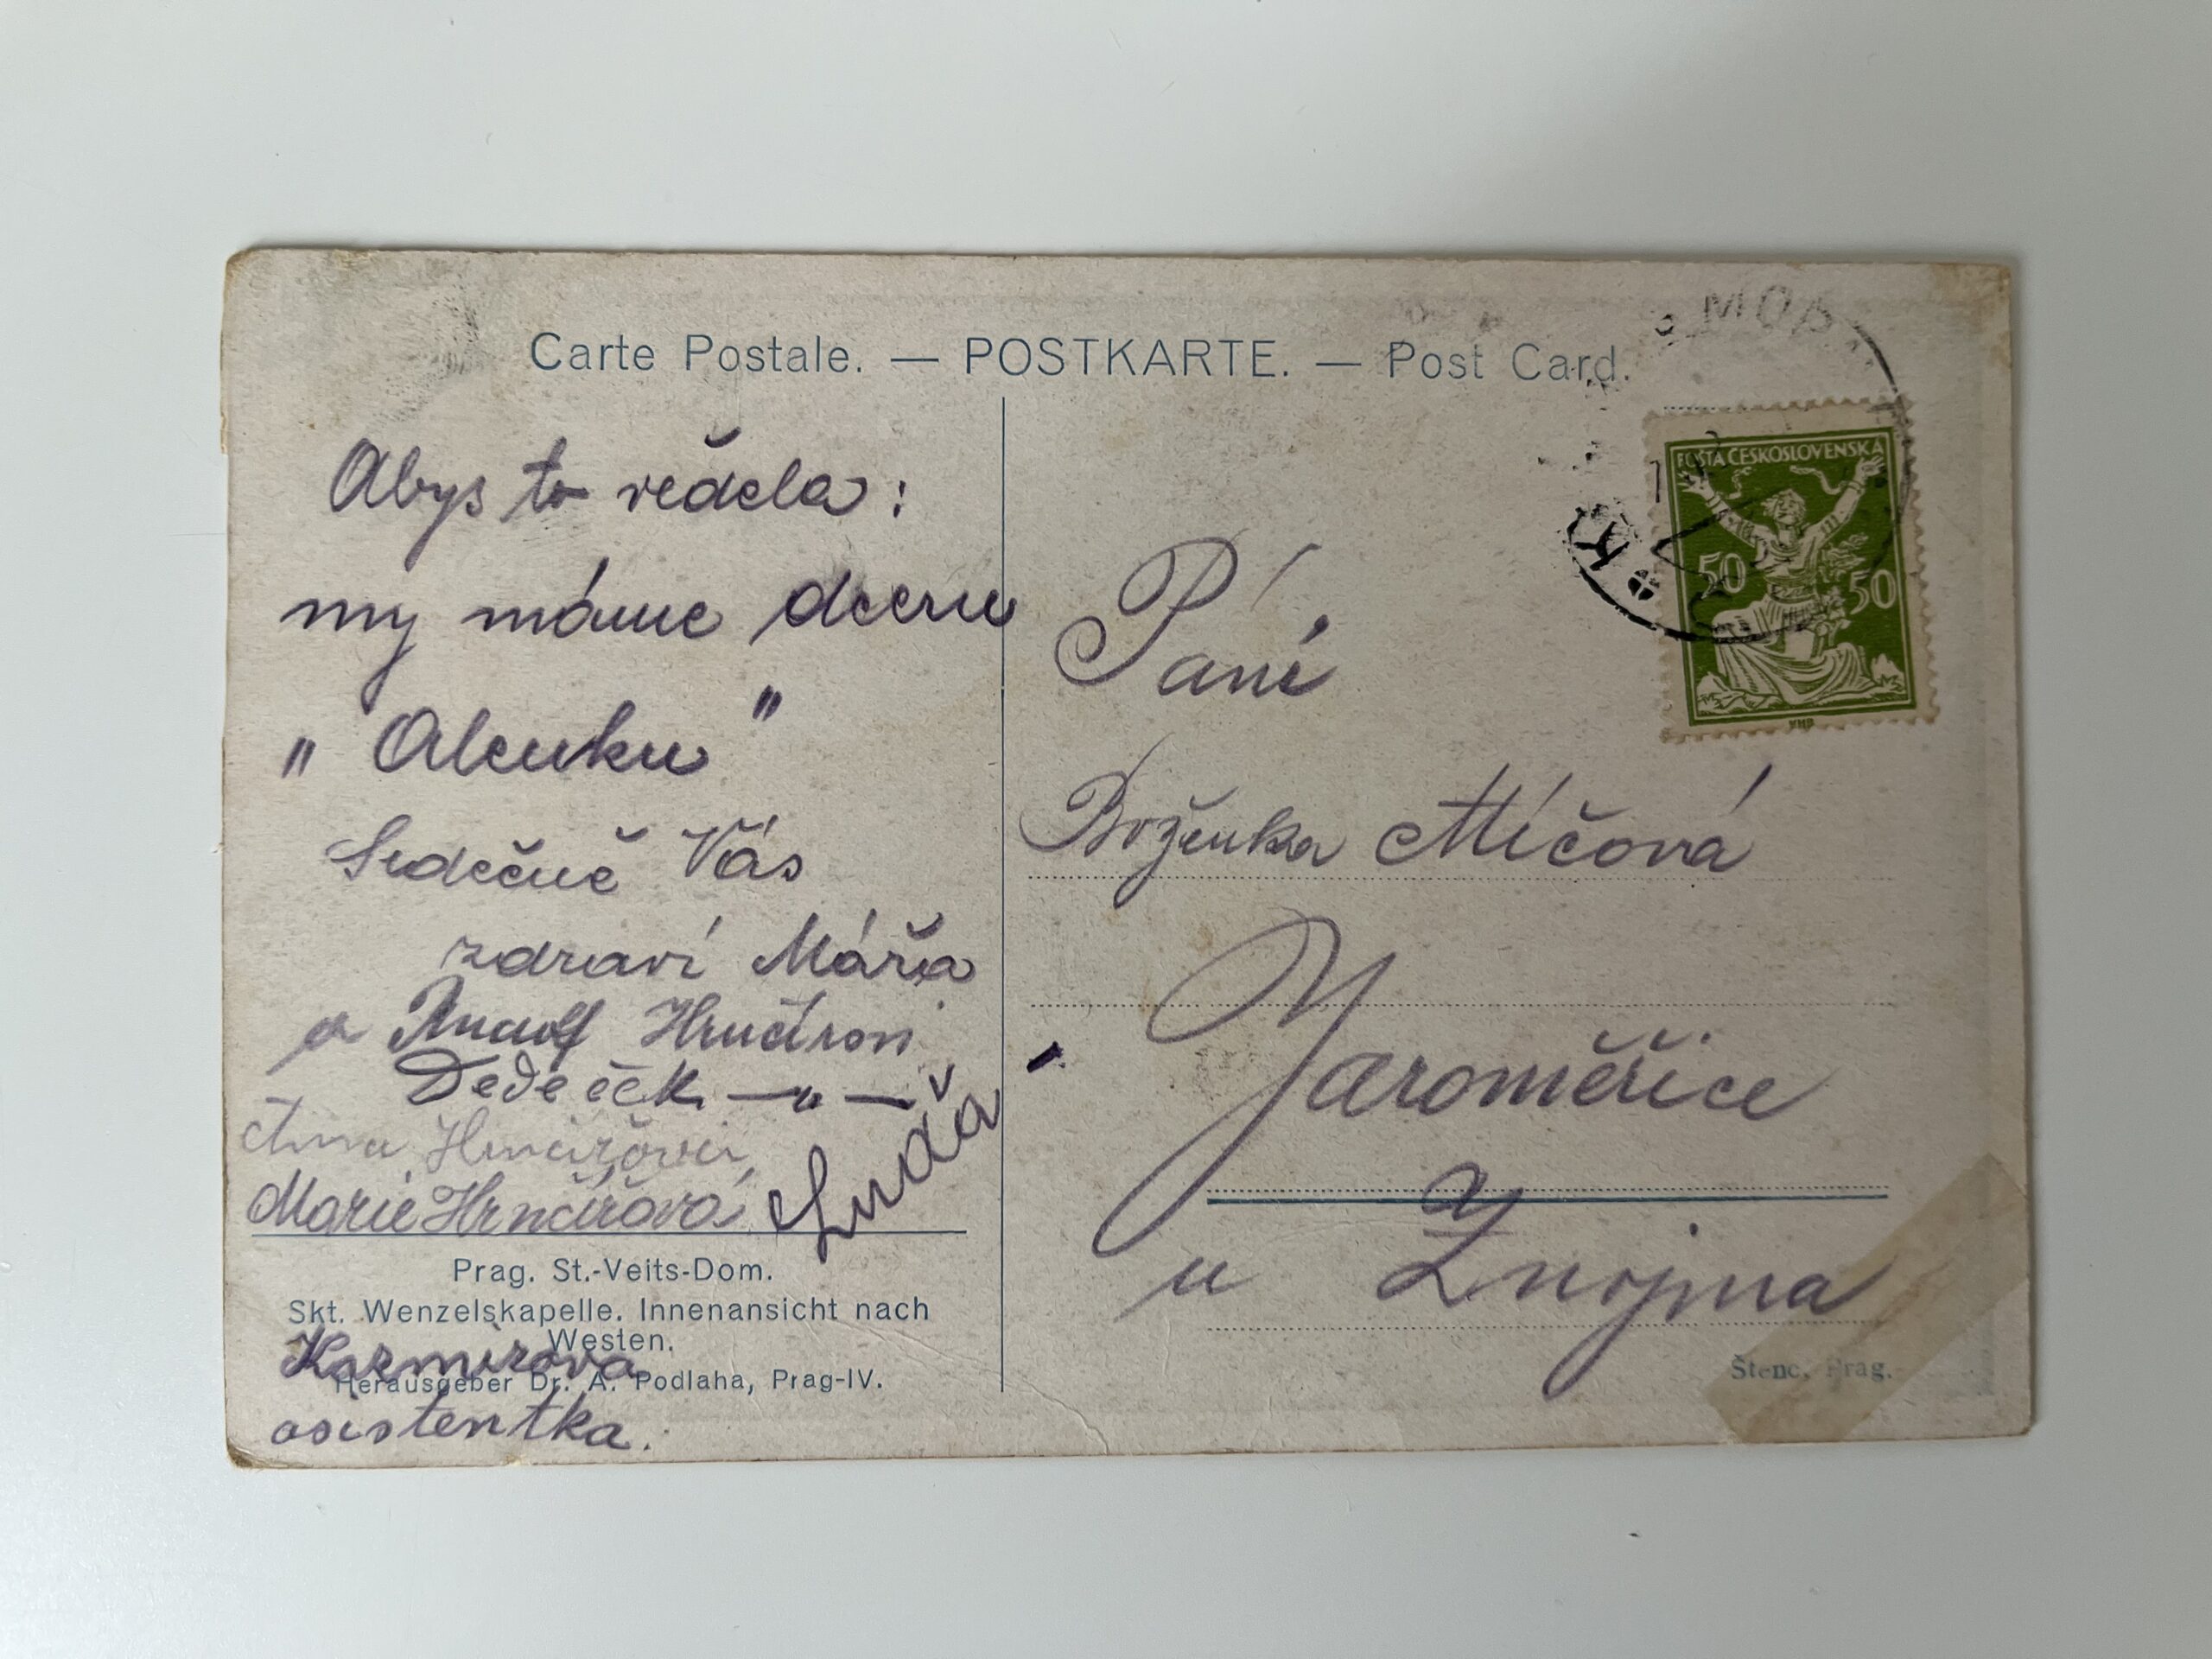 Carte Postale. — POSTKARTE. — Post Card.
Abys to věděla:
my máme dceru
„Alenku"
Srdečně Vás
zdraví Máňa
a Rudolf Hrnčírovi
Dedeček —„—
Anna Hrnčířová
Marie Hrnčířová
Luďa
Prag. St.-Veits-Dom.
Skt. Wenzelskapelle. Innenansicht nach
Westen.
Herausgeber Dr. A. Podlaha, Prag-IV.
asistentka.
POŠTA ČESKOSLOVENSKÁ
50 50
Paní
Boženka Míčová
Jaroměřice
u Znojma
Štenc, Prag.